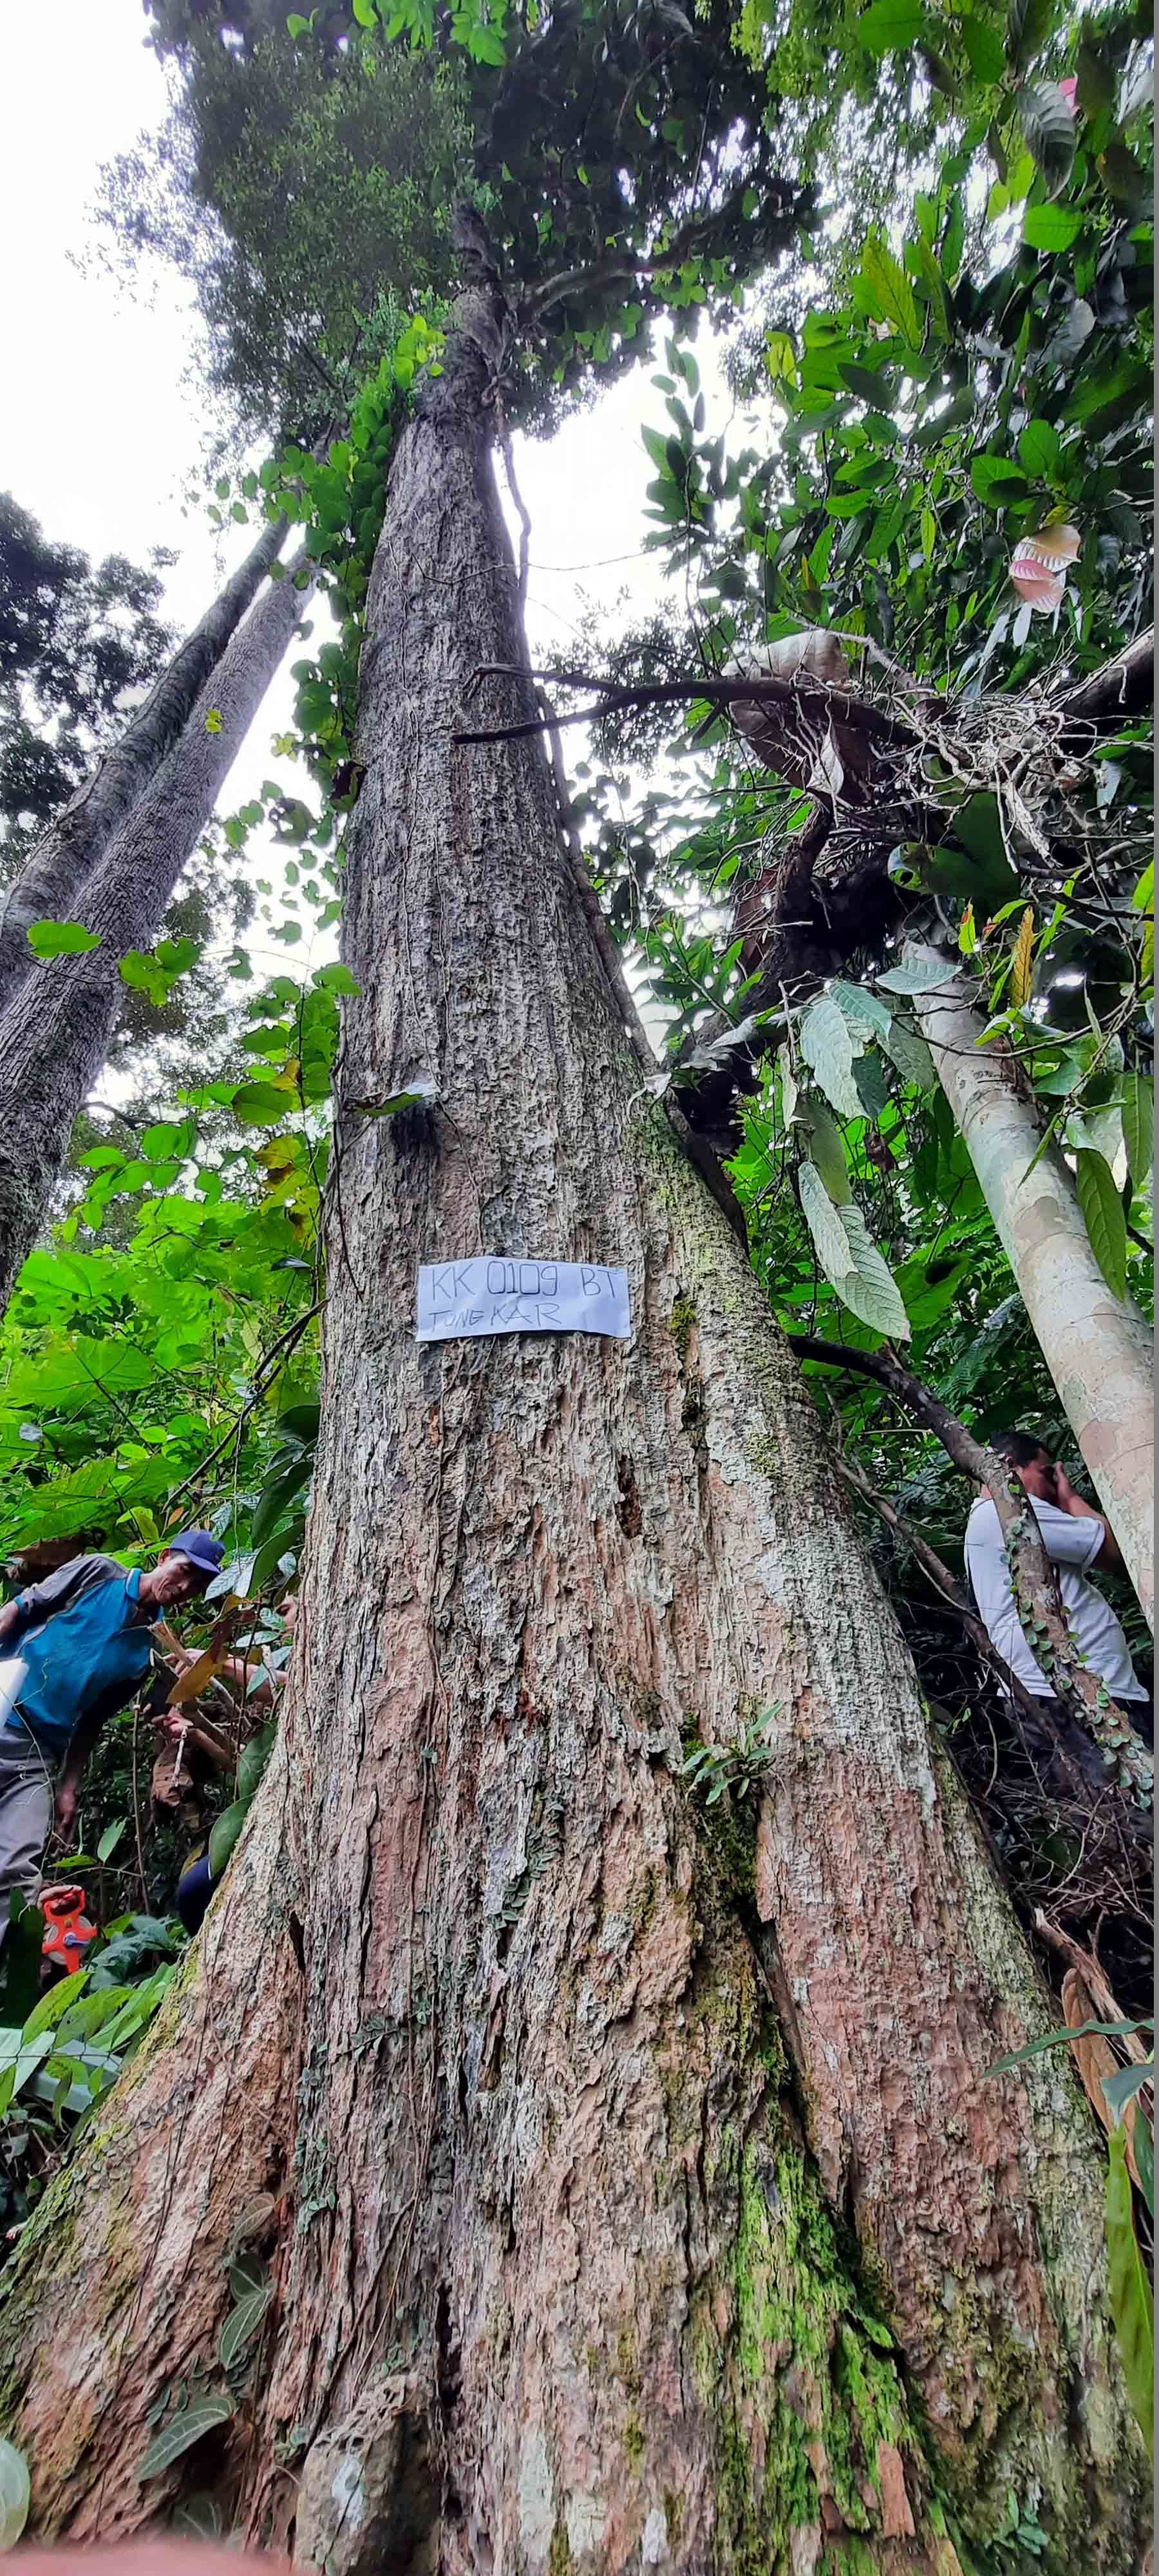 KK 0109 BT
TUNGKAR